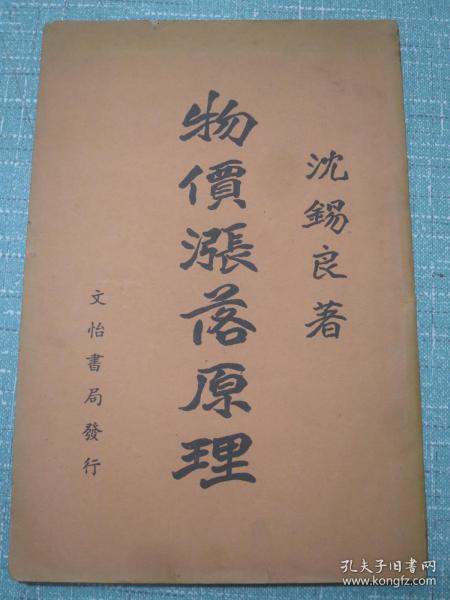 沈錫良著
物價漲落原理
文怡書局發行
孔夫子旧书网
www.kongfz.com